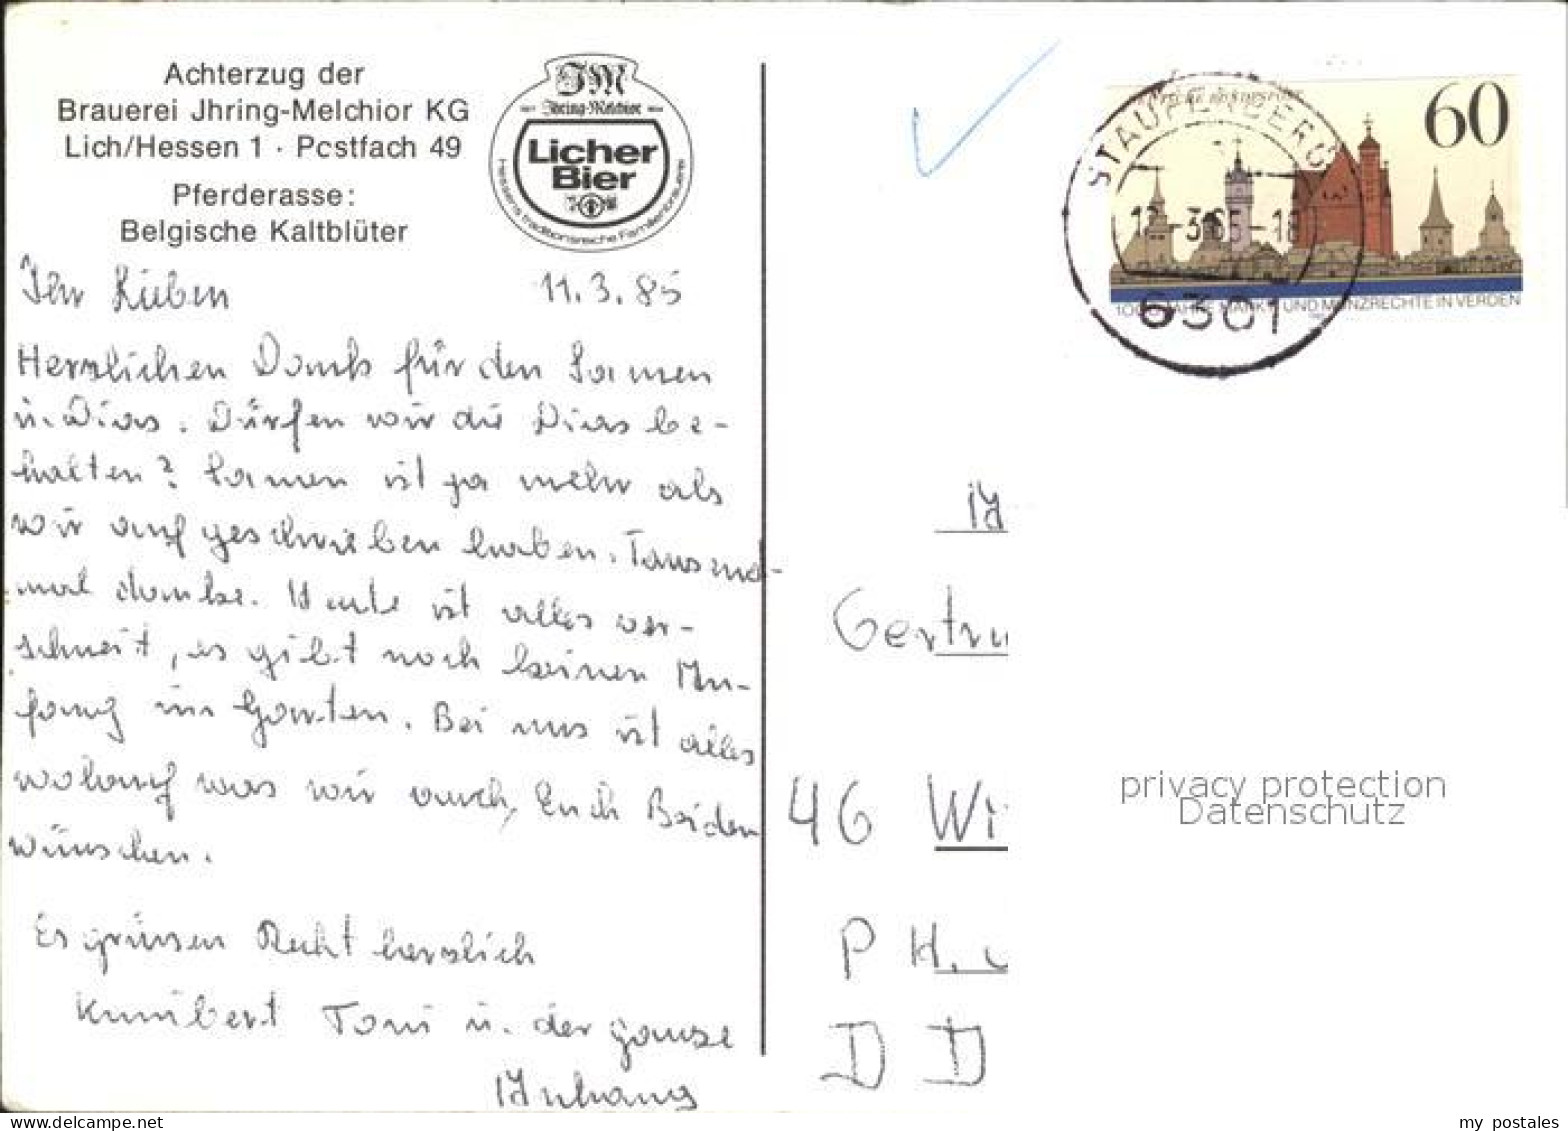 Achterzug der
Brauerei Jhring-Melchior KG
Lich/Hessen 1 · Postfach 49
Pferderasse:
Belgische Kaltblüter
JM
Jhring-Melchior
Licher
Bier
Hessens traditionsreiche Familienbrauerei
Ihr Lieben 11.3.85
Herzlichen Dank für den Samen
u. Dias. Dürfen wir die Dias be-
halten? Samen ist ja mehr als
wir aufgeschrieben haben. Tausend-
mal danke. Heute ist alles ver-
schneit, es gibt noch keinen An-
fang im Garten. Bei uns ist alles
wohlauf was wir auch Euch Beiden
wünschen.
Es grüssen Recht herzlich
Kunibert Toni u. der ganze
Anhang
60
STAUFENBERG
6301
1000 JAHRE MARKT- UND MÜNZRECHTE IN VERDEN
Gertru
46 Wi
P H.
D D
privacy protection
Datenschutz
www.delcampe.net
my_postales